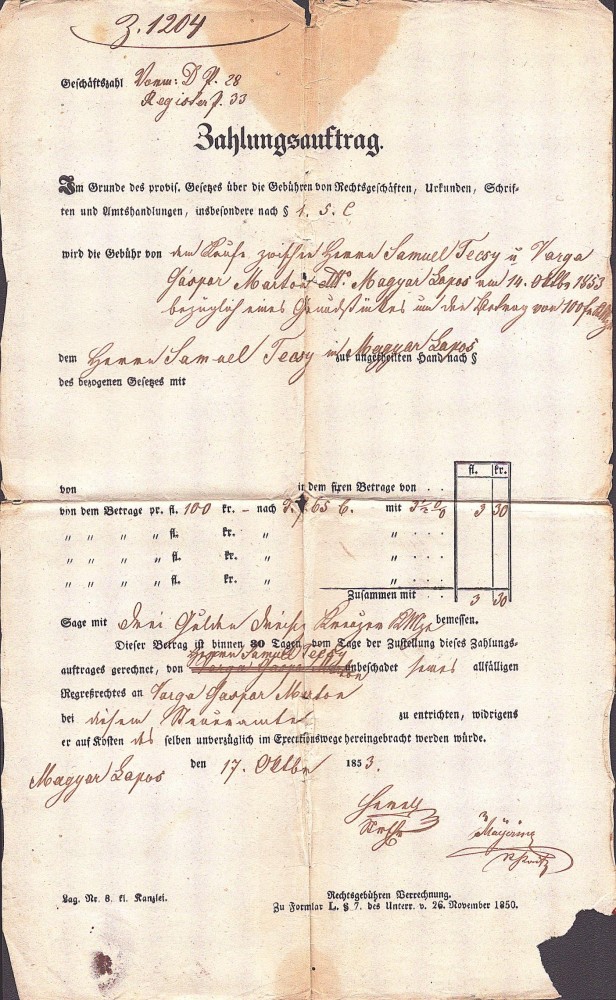 Z. 1204
Geschäftszahl Vorm: D P. 28
Register f. 33
Zahlungsauftrag.
Im Grunde des provis. Gesetzes über die Gebühren von Rechtsgeschäften, Urkunden, Schrif-
ten und Amtshandlungen, insbesondere nach § 1. 5. C
wird die Gebühr von dem Kaufe zwischen Herrn Samuel Tecsy u Varga
Gáspár Marton Magyar Lapos vom 14. Oktbr 1853
bezüglich eines Grundstückes um den Betrag von 100 f
dem Herrn Samuel Tecsy in Magyar Lapos zur ungetheilten Hand nach §
des bezogenen Gesetzes mit
fl. kr.
von in dem fixen Betrage von . .
von dem Betrage pr. fl. 100 kr. – nach T. P. 65 b. mit 3½ % 3 30
" " " " fl. kr. " " . . .
" " " " fl. kr. " " . . .
" " " " fl. kr. " " . . .
Zusammen mit . . . 3 30
Sage mit drei Gulden dreißig Kreuzer bemessen.
Dieser Betrag ist binnen 30 Tagen vom Tage der Zustellung dieses Zahlungs-
Herrn Samuel Tecsy
auftrages gerechnet, von Varga Gaspar Marton unbeschadet seines allfälligen
Regreßrechtes an Varga Gaspar Marton
bei diesem Steueramte zu entrichten, widrigens
er auf Kosten des selben unverzüglich im Executionswege hereingebracht werden würde.
Magyar Lapos den 17. Oktbr 1853.
Lag. Nr. 8. kl. Kanzlei.
Rechtsgebühren Verrechnung.
Zu Formlar L. § 7. des Unterr. v. 26. November 1850.